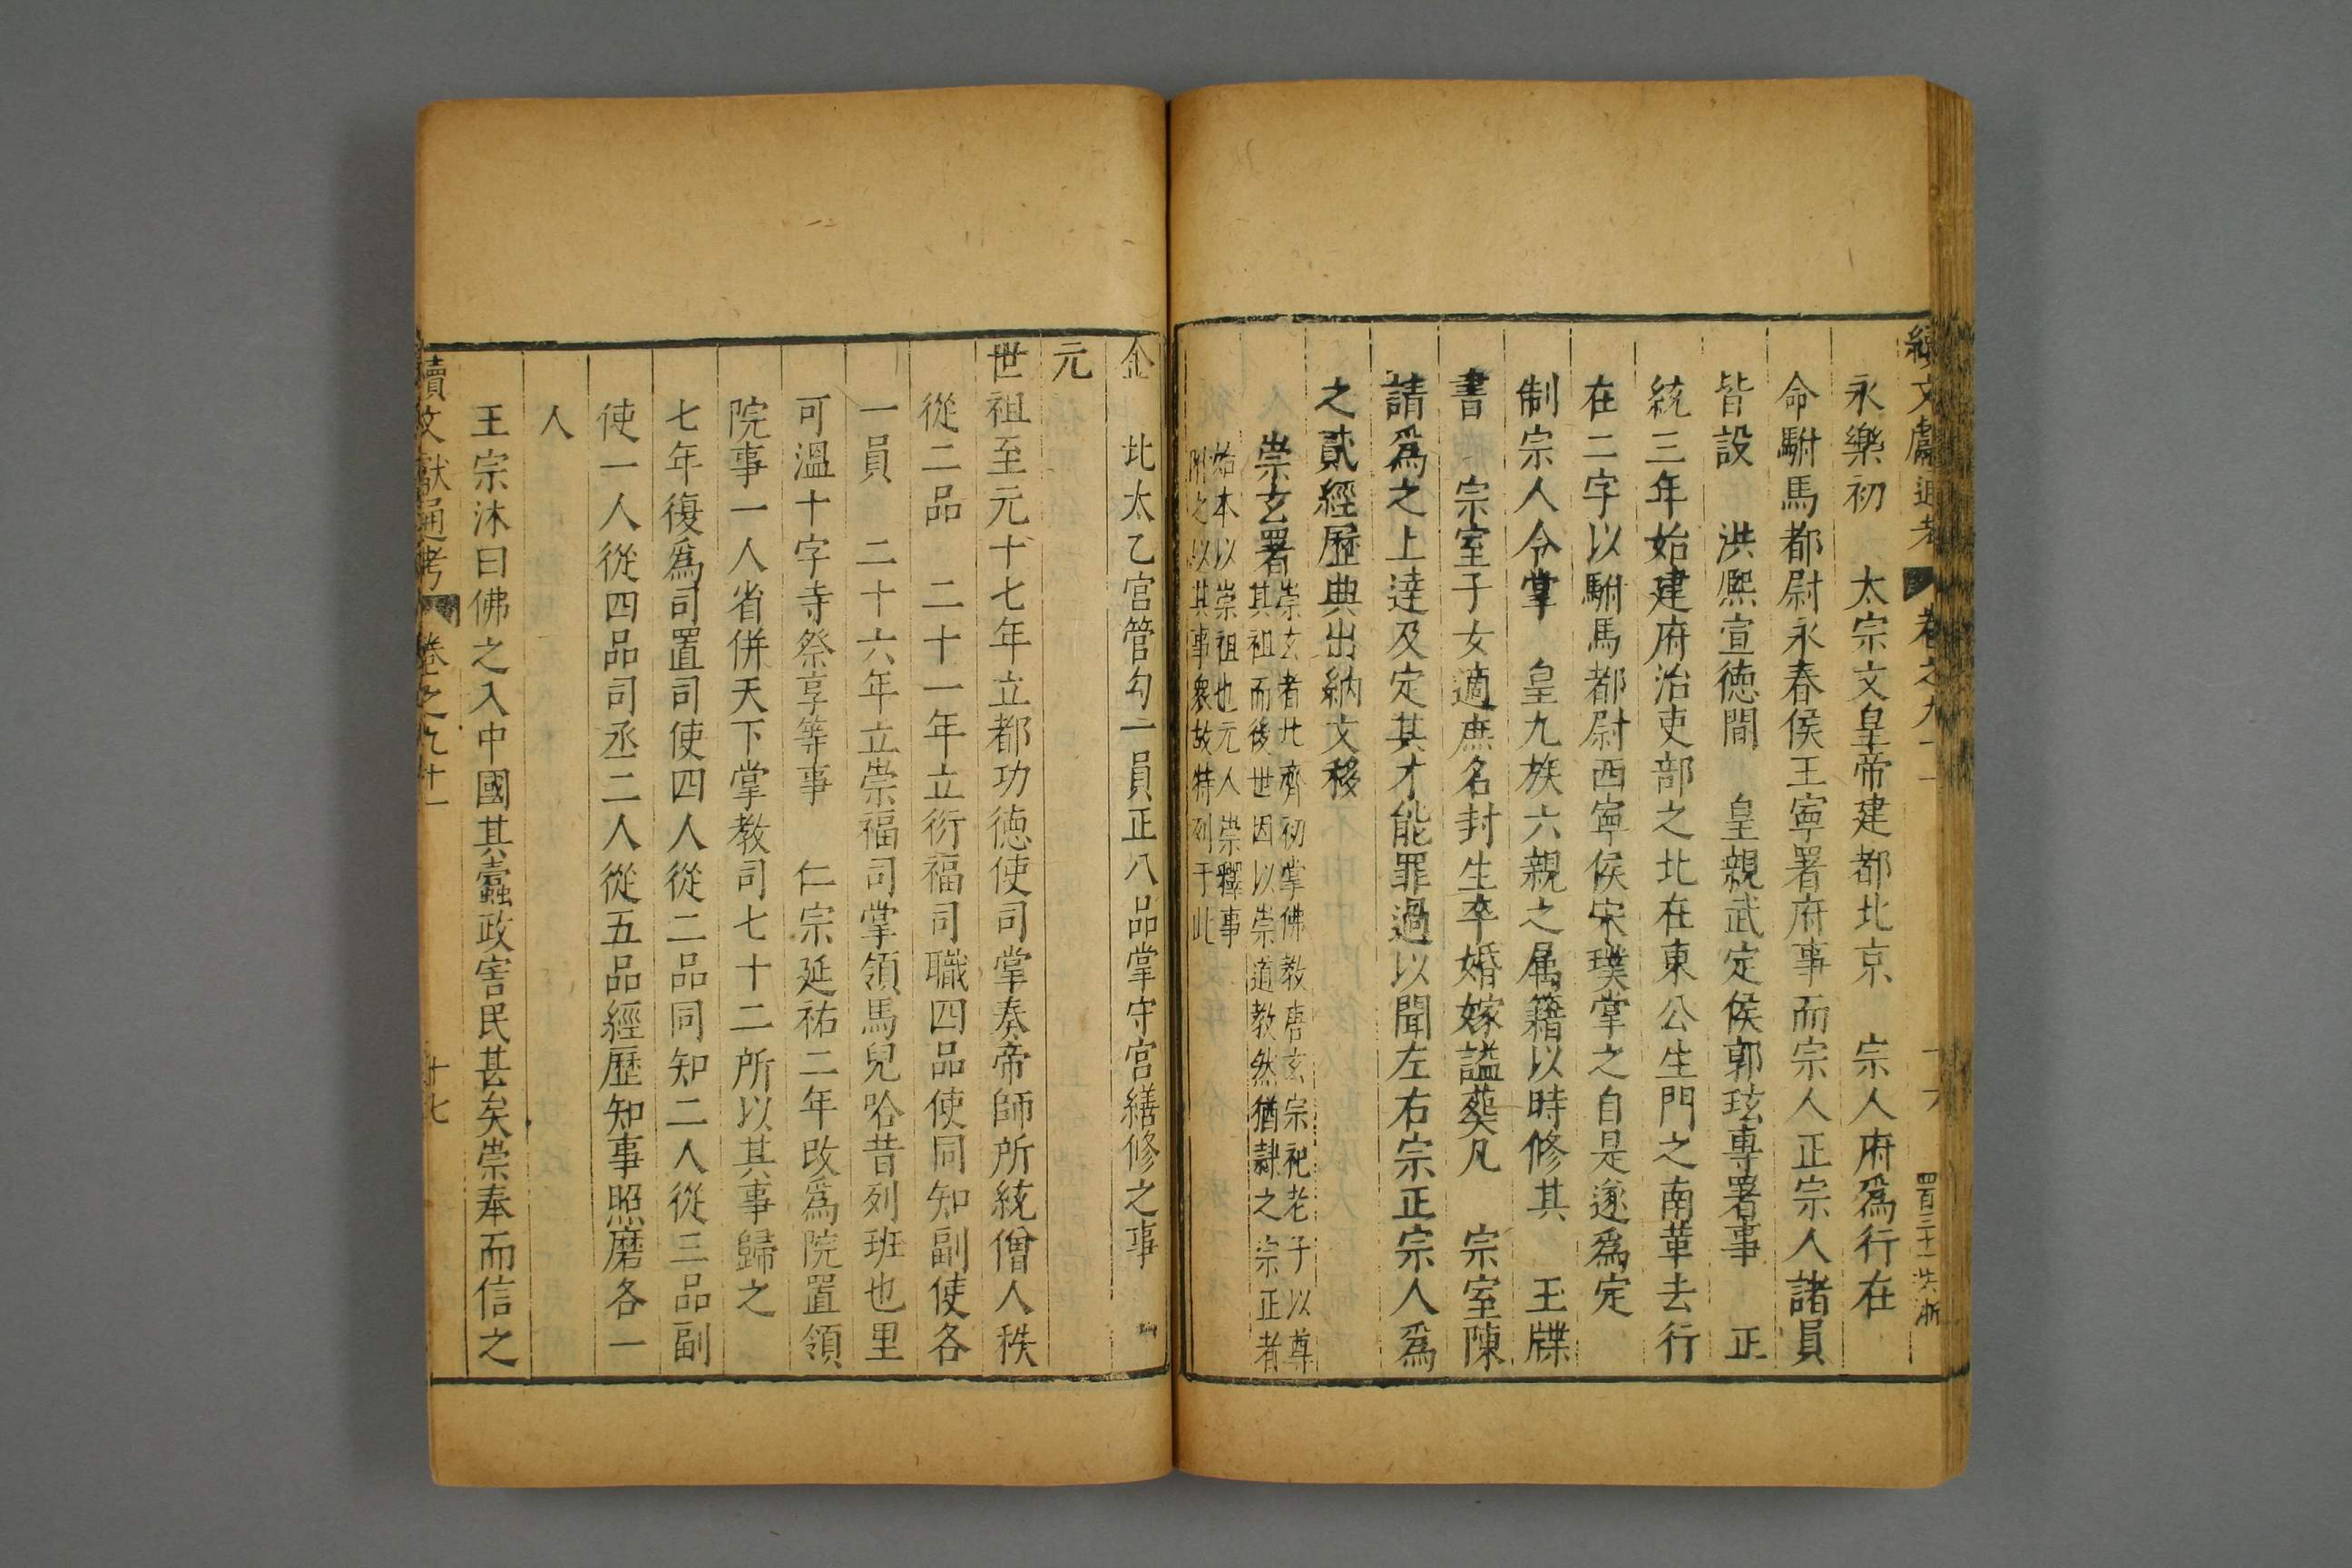 續文獻通考 卷之九十一 十六 四百三十一 洪浙
永樂初 太宗文皇帝建都北京 宗人府爲行在
命駙馬都尉永春侯王寧署府事而宗人正宗人諸員
皆設 洪熙宣德間 皇親武定侯郭玹專署事 正
統三年始建府治吏部之北在東公生門之南革去行
在二字以駙馬都尉西寧侯宋瑛掌之自是遂爲定
制宗人令掌 皇九族六親之属籍以時修其 王牒
書 宗室子女適庶名封生卒婚嫁謚葬凡 宗室陳
請爲之上達及定其才能罪過以聞左右宗正宗人爲
之貳經歷典出納文移
崇玄署崇玄者北齊初掌佛教唐玄宗祀老子以尊
其祖而後世因以崇道教然猶隸之宗正者
始本以崇祖也元人崇釋事
附之以其事衆故特列于此
金 北太乙宮管勾一員正八品掌守宮繕修之事
元
世祖至元十七年立都功德使司掌奏帝師所統僧人秩
從二品 二十一年立衍福司職四品使同知副使各
一員 二十六年立崇福司掌領馬兒哈昔列班也里
可溫十字寺祭享等事 仁宗延祐二年改爲院置領
院事一人省併天下掌教司七十二所以其事歸之
七年復爲司置司使四人從二品同知二人從三品副
使一人從四品司丞二人從五品經歷知事照磨各一
人
王宗沐曰佛之入中國其蠹政害民甚矣崇奉而信之
續文獻通考 卷之九十一 十七